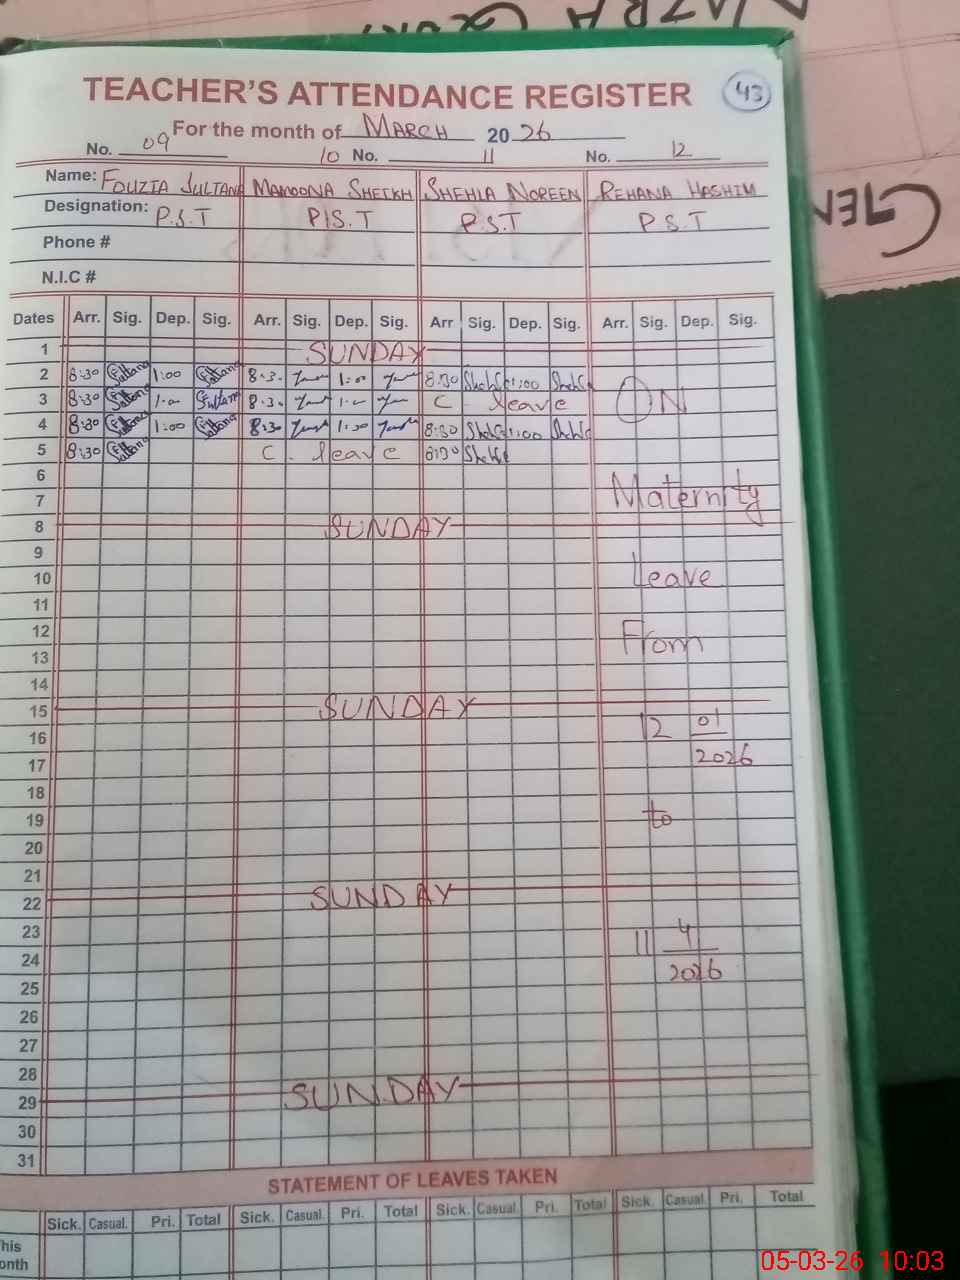 TEACHER'S ATTENDANCE REGISTER
43
For the month of MARCH 2026
No. 09 10 No. 11 No. 12
Name: FOUZIA SULTANA MAMOONA SHEIKH SHEHLA NOREEN REHANA HASHIM
Designation: P.S.T P.S.T P.S.T P.S.T
Phone #
N.I.C #
Dates Arr. Sig. Dep. Sig. Arr. Sig. Dep. Sig. Arr Sig. Dep. Sig. Arr. Sig. Dep. Sig.
1 SUNDAY
2 8:30 Sultana 1:00 Sultana 8:30 1:00 8:30 1:00
3 8:30 Sultana 1:00 Sultana 8:30 1:00 C leave ON
4 8:30 Sultana 1:00 Sultana 8:30 1:30 8:30 1:00
5 8:30 Sultana C. leave 8:30
6
7 Maternity
8 SUNDAY
9
10 Leave
11
12 From
13
14
15 SUNDAY
16 12 01
17 2026
18
19 to
20
21
22 SUNDAY
23
24 11 4
25 2026
26
27
28
29 SUNDAY
30
31
STATEMENT OF LEAVES TAKEN
Sick. Casual. Pri. Total Sick. Casual. Pri. Total Sick. Casual. Pri. Total Sick. Casual. Pri. Total
05-03-26 10:03